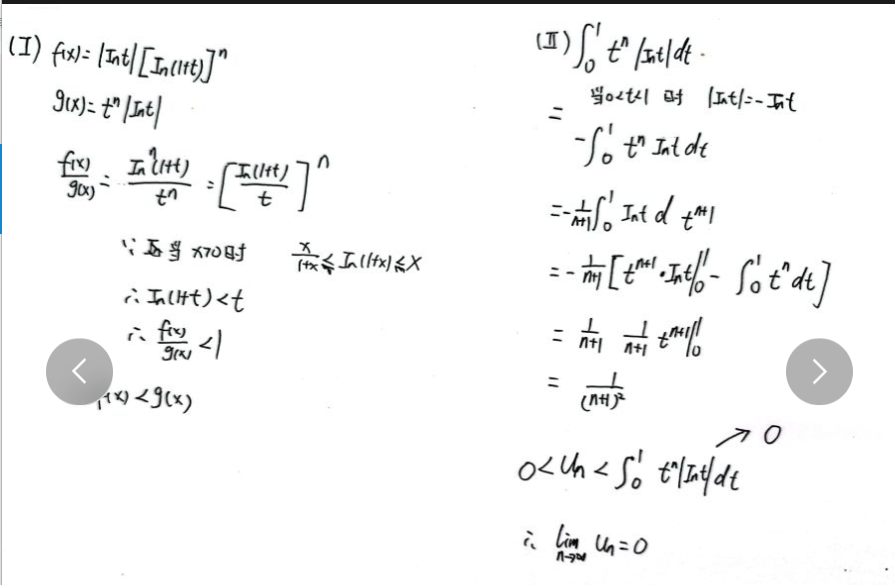 (I) f(x)=|lnt|[ln(1+t)]^n
g(x)=t^n|lnt|
f(x)/g(x) = ln^n(1+t)/t^n = [ln(1+t)/t]^n
∵ 当 x>0时 x/(1+x) ≤ ln(1+x) ≤ x
∴ ln(1+t)<t
∴ f(x)/g(x) <1
f(x)<g(x)
(II) ∫₀¹ t^n|lnt|dt.
= 当0<t<1时 |lnt|=-lnt
-∫₀¹ t^n lnt dt
=-1/(n+1)∫₀¹ lnt d t^(n+1)
=-1/(n+1)[t^(n+1)·lnt|₀¹ - ∫₀¹ t^n dt]
= 1/(n+1) 1/(n+1) t^(n+1)|₀¹
= 1/(n+1)²
0<Un<∫₀¹ t^n|lnt|dt → 0
∴ lim n→∞ Un=0